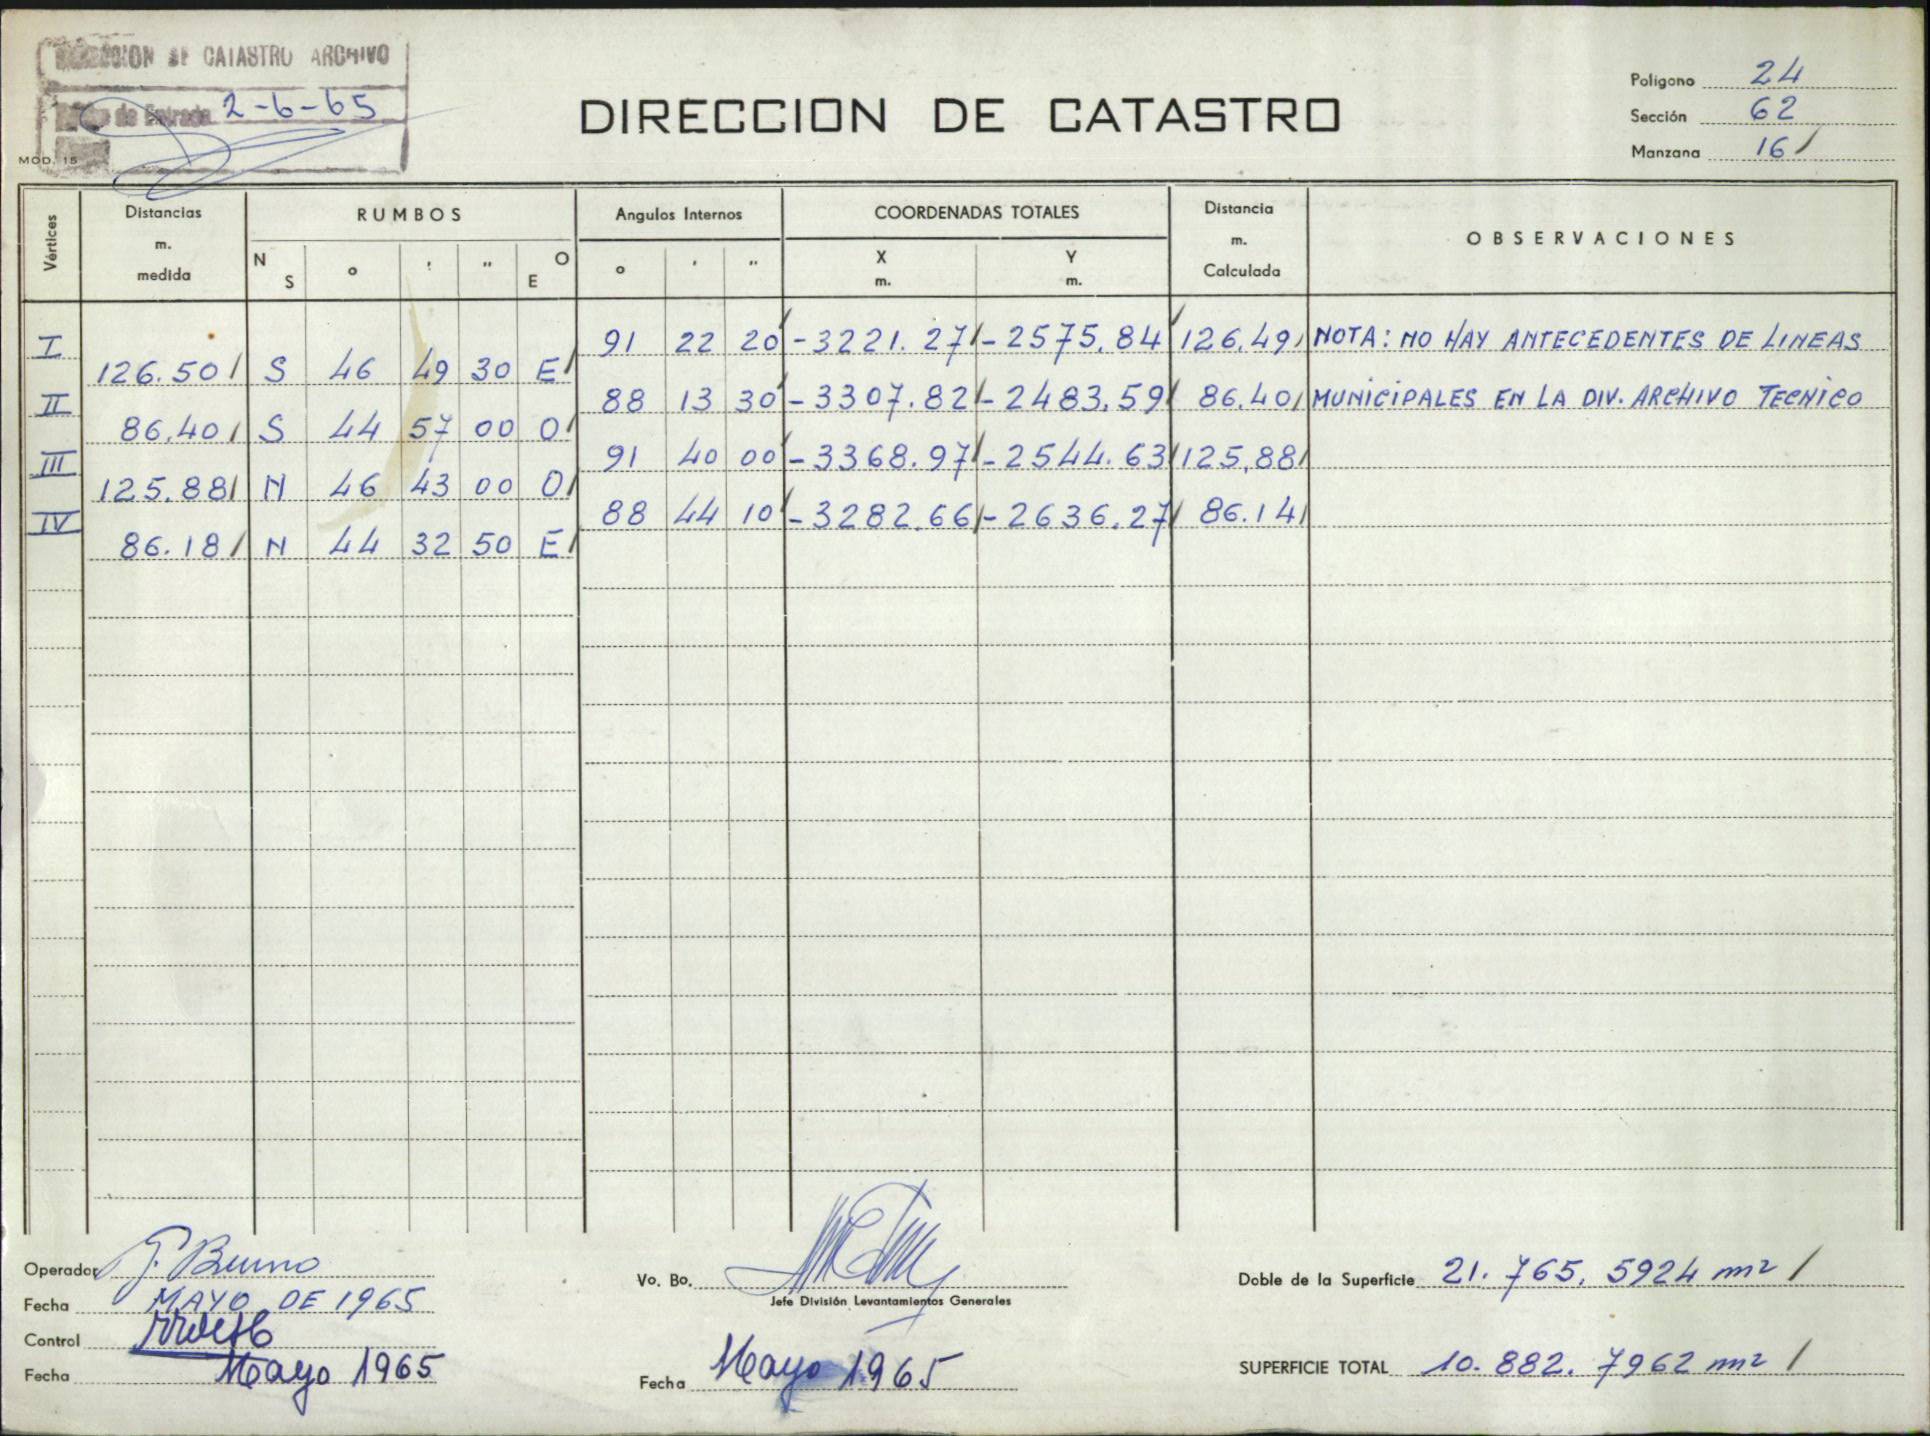 DIRECCION DE CATASTRO ARCHIVO
de Entrada 2-6-65
MOD. 15
DIRECCION DE CATASTRO
Polígono 24
Sección 62
Manzana 16
Vértices
Distancias m. medida
RUMBOS
N S ° ' " O E
Angulos Internos
° ' "
COORDENADAS TOTALES
X m. Y m.
Distancia m. Calculada
OBSERVACIONES
I 91 22 20 -3221.27 -2575.84 126.49 NOTA: NO HAY ANTECEDENTES DE LINEAS
126.50 S 46 49 30 E
II 88 13 30 -3307.82 -2483.59 86.40 MUNICIPALES EN LA DIV. ARCHIVO TECNICO
86.40 S 44 57 00 O
III 91 40 00 -3368.97 -2544.63 125.88
125.88 N 46 43 00 O
IV 88 44 10 -3282.66 -2636.27 86.14
86.18 N 44 32 50 E
Operador G. Bruno
Fecha MAYO DE 1965
Control
Fecha Mayo 1965
Vo. Bo.
Jefe División Levantamientos Generales
Fecha Mayo 1965
Doble de la Superficie 21.765,5924 m2
SUPERFICIE TOTAL 10.882.7962 m2